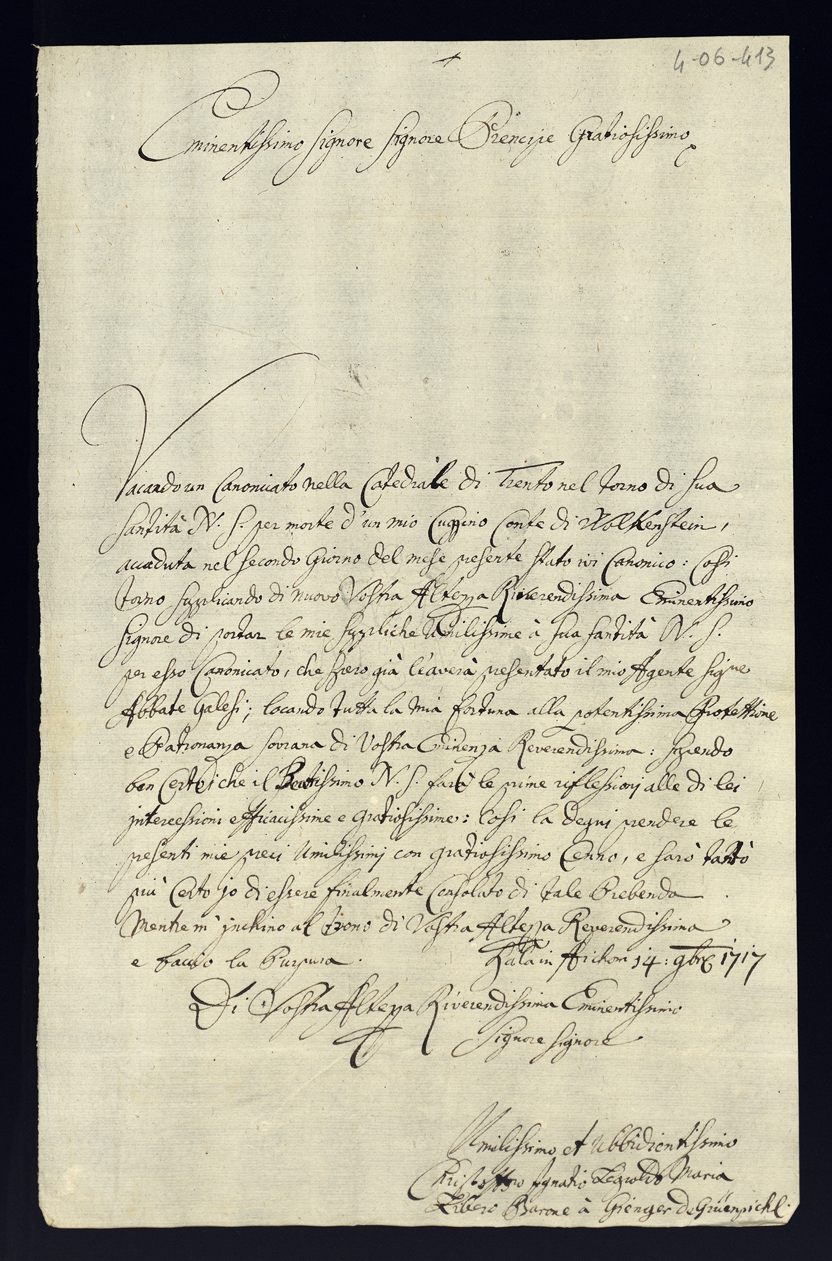 4-06-413
Eminentissimo Signore Signore Prencipe Gratiosissimo
Vacando un Canonicato nella Catedrale di Trento nel torno di Sua
Santità N. S. per morte d'un mio Cuggino Conte di Wolkenstein,
accaduta nel secondo Giorno del mese presente stato ivi Canonico: Cosi
torno supplicando di nuovo Vostra Altezza Reverendissima Eminentissimo
Signore di portar le mie suppliche Umilissime à Sua Santità N. S.
per esso Canonicato, che spero già l'averà presentato il mio Agente Sig.re
Abbate Galesi; locando tutta la mia fortuna alla potentissima Protettione
e Patronanza sovrana di Vostra Eminenza Reverendissima: essendo
ben certo che il Beatissimo N. S. farà le prime riflessioni alle di lei
intercessioni efficacissime e gratiosissime: Cosi la degni prendere le
presenti mie preci Umilissimi con gratiosissimo Cenno, e sarò tanto
più Certo jo di essere finalmente Consolato di tale Prebenda
Mentre m'inchino al trono di Vostra Altezza Reverendissima
e baccio la Purpura. Hala in 14: 9bre 1717
Di Vostra Altezza Riverendissima Eminentissimo
Signore Signore
Umilissimo et Ubbidientissimo
Christoffero Ignatio Leopoldo Maria
Libero Barone à Gienger di Grüenpichl.